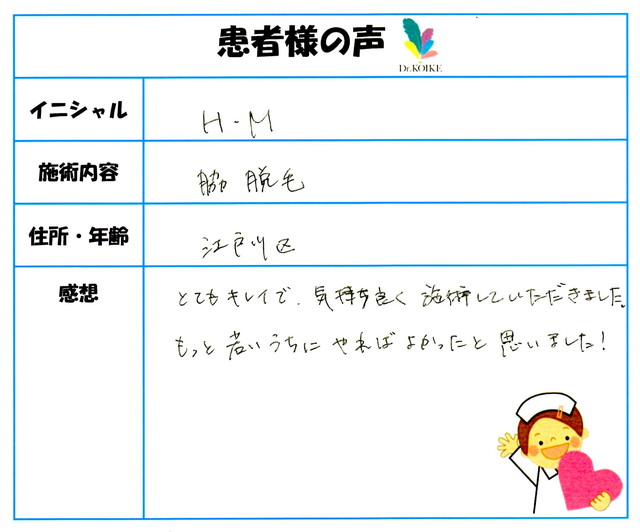 患者様の声
Dr.KOIKE
イニシャル
H・M
施術内容
脇 脱毛
住所・年齢
江戸川区
感想
とてもキレイで、気持ち良く 施術していただきました。
もっと 若いうちに やれば よかったと 思いました!